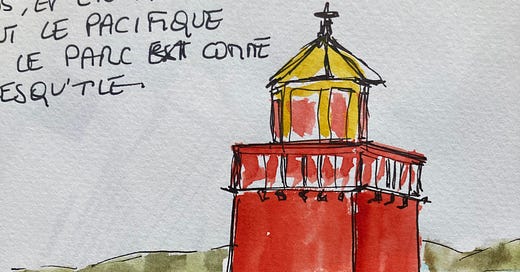 UT LE PACIFIQUE
LE PARC EST COMME
ESQU'ILE